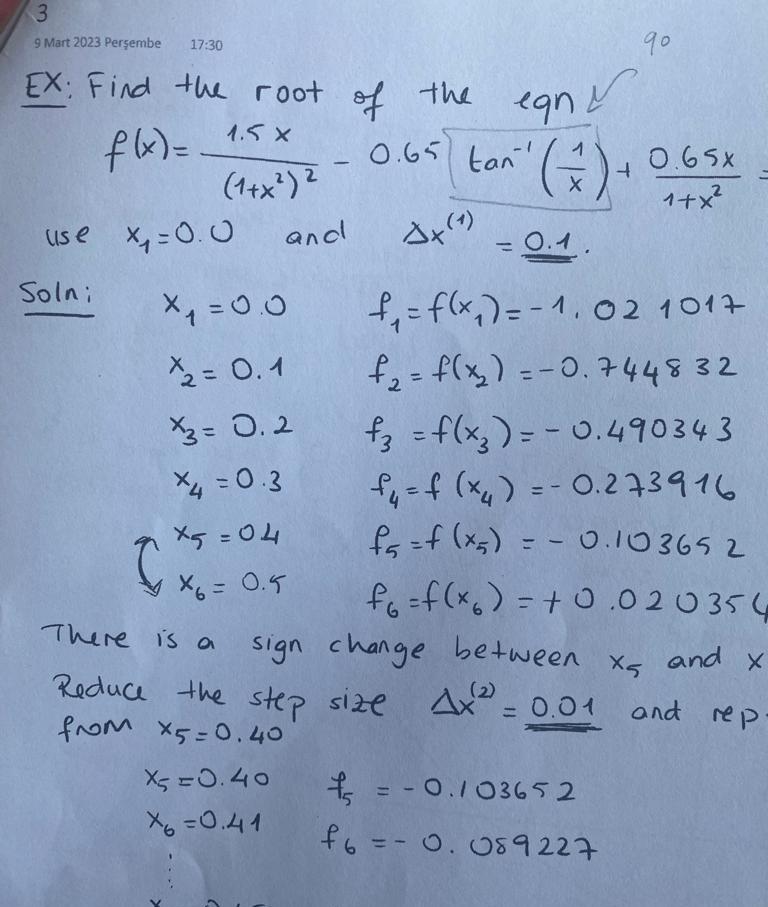 3
9 Mart 2023 Perşembe 17:30
90
EX: Find the root of the eqn
f(x) = 1.5x / (1+x²)² - 0.65 tan⁻¹(1/x) + 0.65x / 1+x² =
use x₁=0.0 and Δx⁽¹⁾ = 0.1.
Soln:
x₁=0.0 f₁=f(x₁)=-1.021017
x₂=0.1 f₂=f(x₂)=-0.744832
x₃=0.2 f₃=f(x₃)=-0.490343
x₄=0.3 f₄=f(x₄)=-0.273916
x₅=0.4 f₅=f(x₅)=-0.103652
x₆=0.5 f₆=f(x₆)=+0.020354
There is a sign change between x₅ and x
Reduce the step size Δx⁽²⁾ = 0.01 and rep
from x₅=0.40
x₅=0.40 f₅=-0.103652
x₆=0.41 f₆=-0.089227